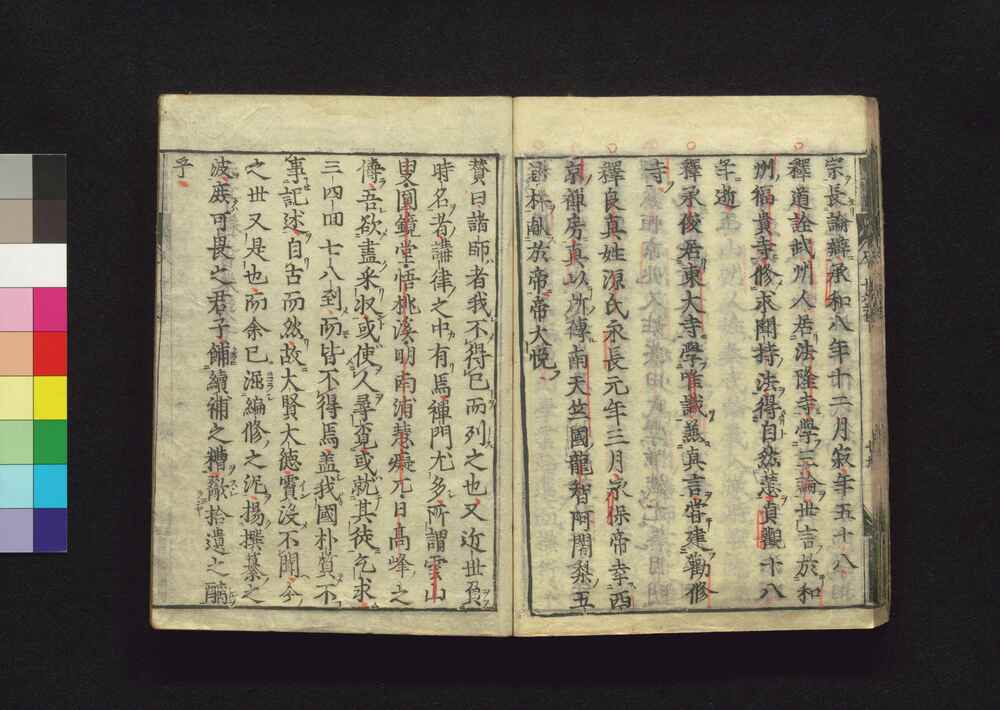 宗長論辯承和八年十二月寂年五十八
釋道詮武州人居法隆寺學三論世言於和
州福貴寺修求聞持法得自然慧貞觀十八
年逝
釋承俊居東大寺學唯識兼真言嘗建勸修
寺
釋良真姓源氏永長元年三月永保帝幸西
京禪房真以所傳南天竺國龍智阿闍梨五
杵獻於帝帝大悅
贊曰諸師者我不得已而列之也又近世負
時名者講律之中有焉禪門尤多所謂雲山
圓鏡堂悟桃溪明南浦慧癡兀日高峰之
傳吾欲盡采収或使人尋覓或就其徒乞求
三四回七八到而皆不得焉盖我國朴質不
事記述自古而然故太賢太德實沒不聞今
之世又是也而余已涊編修之汜揚撰纂之
波庶可畏之君子餔續補之糟歠拾遺之醨
乎